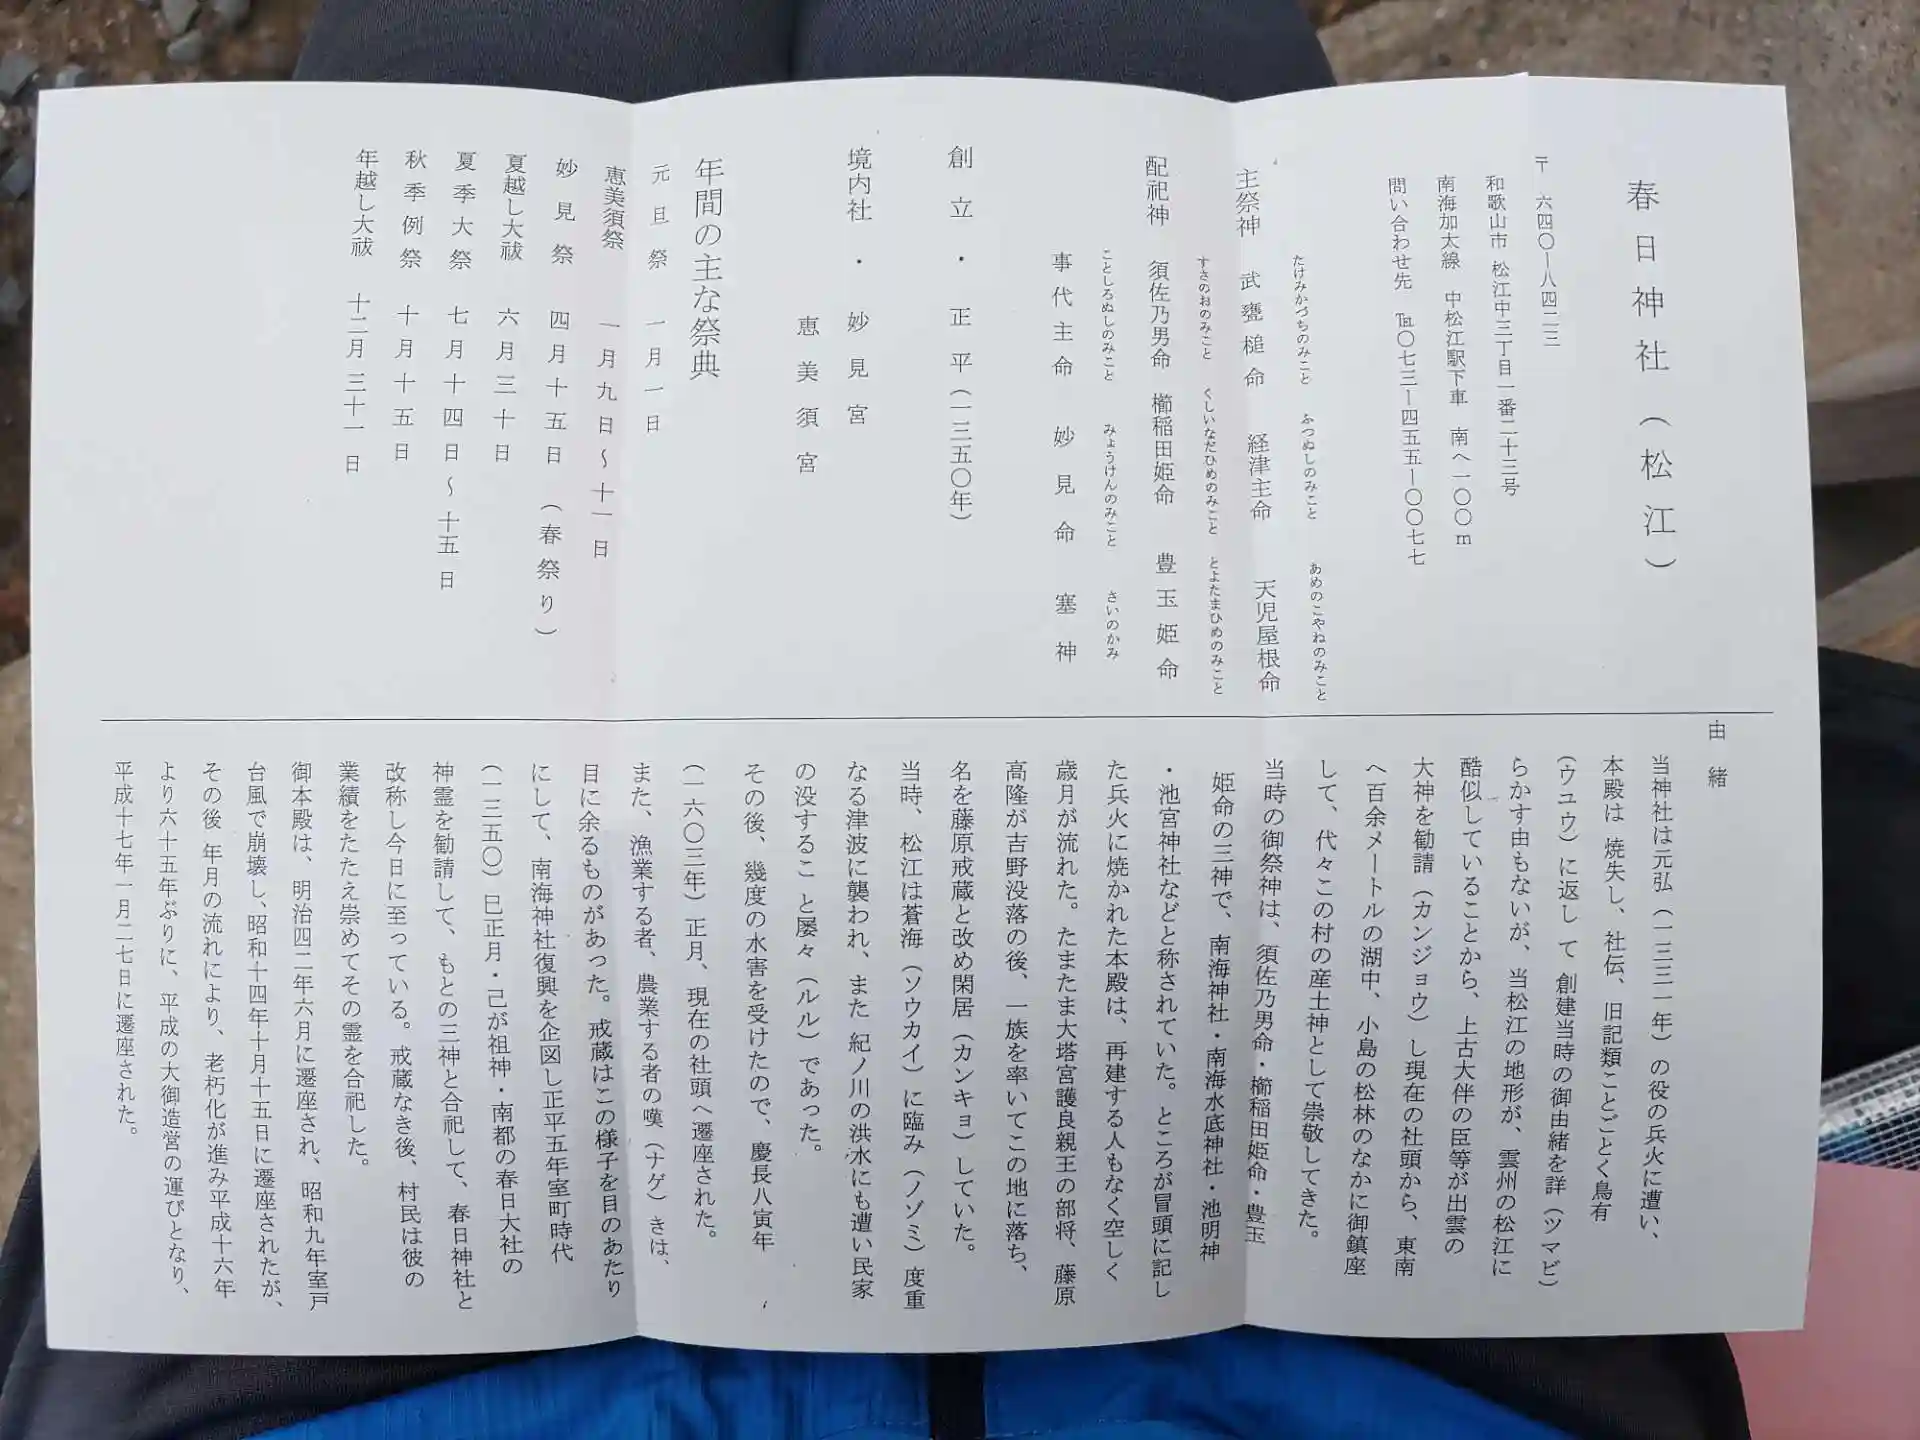 春日神社（松江）
〒 六四〇ー八四二三
和歌山市 松江中三丁目一番二十三号
南海加太線 中松江駅下車 南へ一〇〇m
問い合わせ先 ℡〇七三ー四五五ー〇〇七七
たけみかづちのみこと ふつぬしのみこと あめのこやねのみこと
主祭神 武甕槌命 経津主命 天児屋根命
すさのおのみこと くしいなだひめのみこと とよたまひめのみこと
配祀神 須佐乃男命 櫛稲田姫命 豊玉姫命
ことしろぬしのみこと みょうけんのみこと さいのかみ
事代主命 妙見命 塞神
創立・正平（一三五〇年）
境内社・妙見宮
恵美須宮
年間の主な祭典
元旦祭 一月一日
恵美須祭 一月九日～十一日
妙見祭 四月十五日（春祭り）
夏越し大祓 六月三十日
夏季大祭 七月十四日～十五日
秋季例祭 十月十五日
年越し大祓 十二月三十一日
由緒
当神社は元弘（一三三一年）の役の兵火に遭い、
本殿は 焼失し、社伝、旧記類ことごとく鳥有
（ウユウ）に返し て 創建当時の御由緒を詳（ツマビ）
らかす由もないが、当松江の地形が、雲州の松江に
酷似していることから、上古大伴の臣等が出雲の
大神を勧請（カンジョウ）し現在の社頭から、東南
へ百余メートルの湖中、小島の松林のなかに御鎮座
して、代々この村の産土神として崇敬してきた。
当時の御祭神は、須佐乃男命・櫛稲田姫命・豊玉
姫命の三神で、南海神社・南海水底神社・池明神
・池宮神社などと称されていた。ところが冒頭に記し
た兵火に焼かれた本殿は、再建する人もなく空しく
歳月が流れた。たまたま大塔宮護良親王の部将、藤原
高隆が吉野没落の後、一族を率いてこの地に落ち、
名を藤原戒蔵と改め閑居（カンキョ）していた。
当時、松江は蒼海（ソウカイ）に臨み（ノゾミ）度重
なる津波に襲われ、また 紀ノ川の洪水にも遭い民家
の没するこ と屡々（ルル）であった。
その後、幾度の水害を受けたので、慶長八寅年
（一六〇三年）正月、現在の社頭へ遷座された。
また、漁業する者、農業する者の嘆（ナゲ）きは、
目に余るものがあった。戒蔵はこの様子を目のあたり
にして、南海神社復興を企図し正平五年室町時代
（一三五〇）巳正月・己が祖神・南都の春日大社の
神霊を勧請して、もとの三神と合祀して、春日神社と
改称し今日に至っている。戒蔵なき後、村民は彼の
業績をたたえ崇めてその霊を合祀した。
御本殿は、明治四二年六月に遷座され、昭和九年室戸
台風で崩壊し、昭和十四年十月十五日に遷座されたが、
その後 年月の流れにより、老朽化が進み平成十六年
より六十五年ぶりに、平成の大御造営の運びとなり、
平成十七年一月二七日に遷座された。